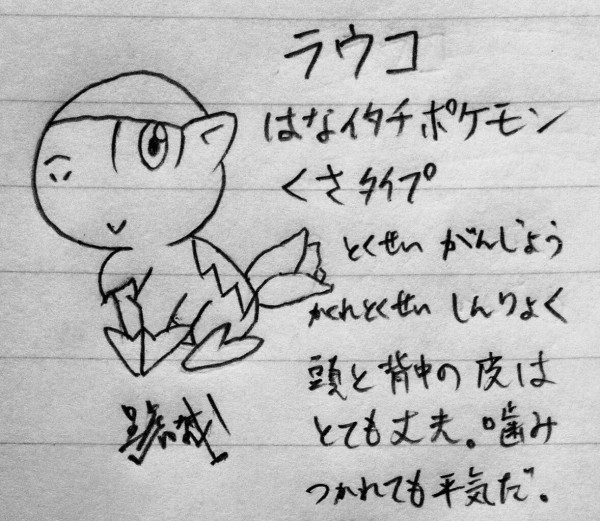 ラウコ
はなイタチポケモン
くさタイプ
とくせい がんじょう
かくれとくせい しんりょく
頭と背中の皮は
とても丈夫。噛み
つかれても平気だ。